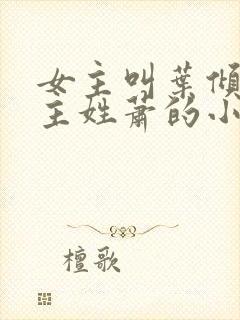 女主叫葉傾
主姓蕭的小
檀歌